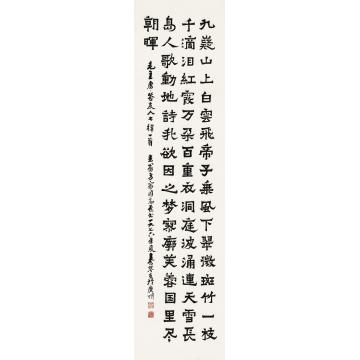 九嶷山上白雲飛帝子乘風下翠微斑竹一枝
千滴泪紅霞万朵百重衣洞庭波涌連天雪長
島人歌動地詩我欲因之梦寥廓芙蓉国里尽
朝暉
毛主席答友人七律一首 一九七六年夏 廣州